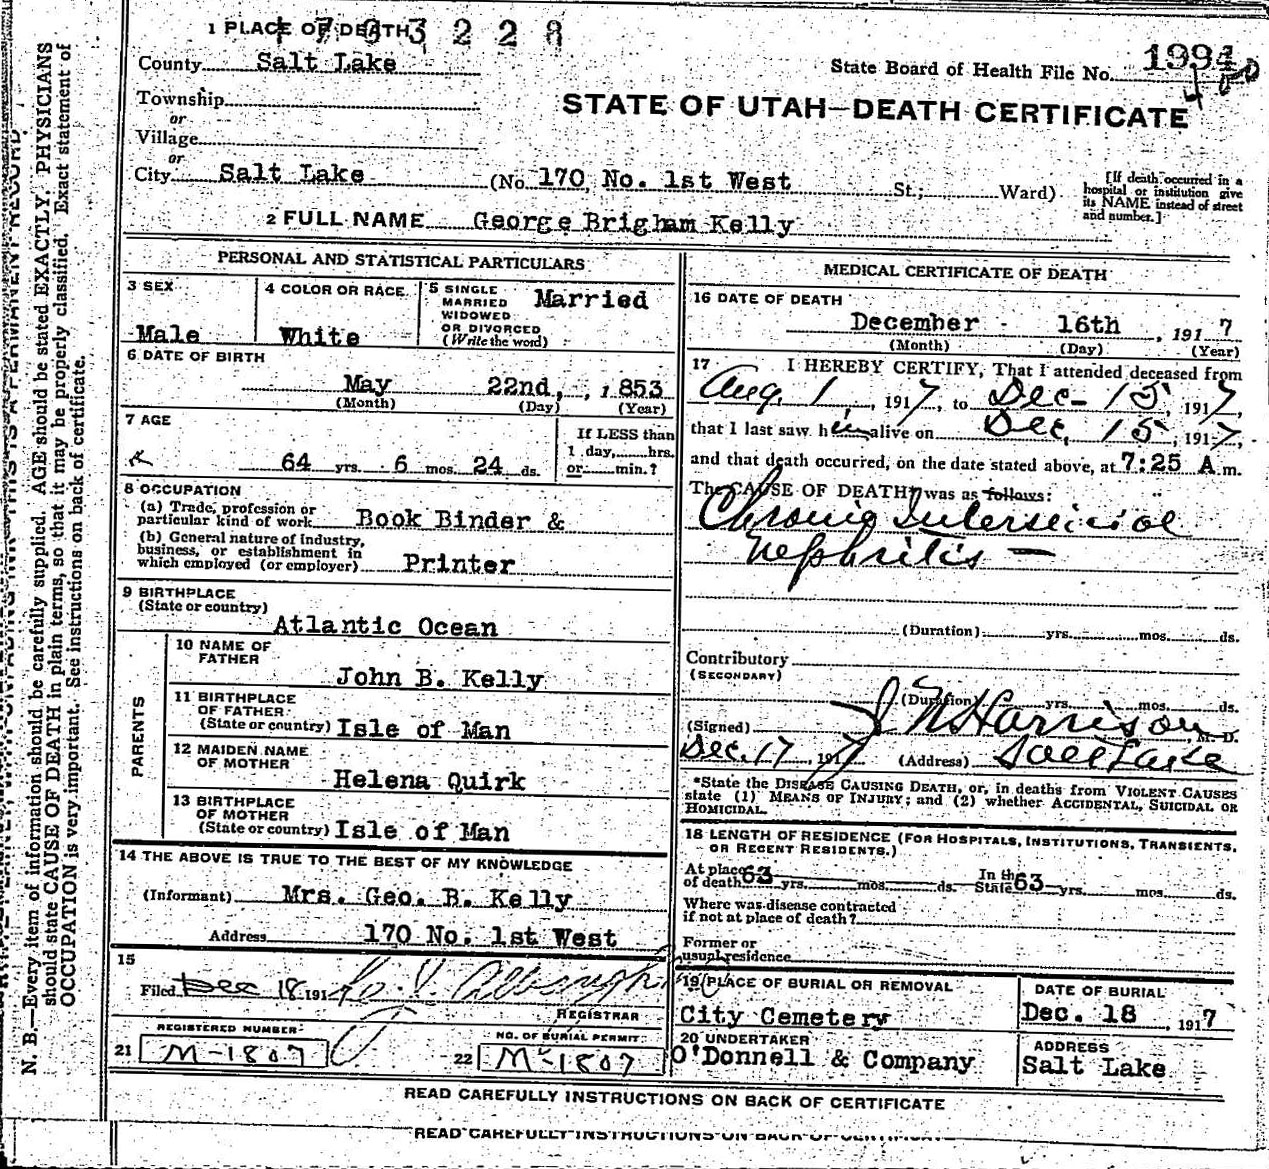 1 PLACE OF DEATH
County Salt Lake
State Board of Health File No. 1994
Township
or
STATE OF UTAH—DEATH CERTIFICATE
Village
or
City Salt Lake (No. 170 No. 1st West St.; Ward)
[If death occurred in a hospital or institution give its NAME instead of street and number.]
2 FULL NAME George Brigham Kelly
PERSONAL AND STATISTICAL PARTICULARS
3 SEX
Male
4 COLOR OR RACE
White
5 SINGLE
MARRIED
WIDOWED
OR DIVORCED
(Write the word)
Married
6 DATE OF BIRTH
May 22nd, 1853
(Month) (Day) (Year)
7 AGE
64 yrs. 6 mos. 24 ds.
If LESS than
1 day, hrs.
or min.?
8 OCCUPATION
(a) Trade, profession or
particular kind of work Book Binder &
(b) General nature of industry,
business, or establishment in
which employed (or employer) Printer
9 BIRTHPLACE
(State or country)
Atlantic Ocean
PARENTS
10 NAME OF
FATHER
John B. Kelly
11 BIRTHPLACE
OF FATHER
(State or country) Isle of Man
12 MAIDEN NAME
OF MOTHER
Helena Quirk
13 BIRTHPLACE
OF MOTHER
(State or country) Isle of Man
14 THE ABOVE IS TRUE TO THE BEST OF MY KNOWLEDGE
(Informant) Mrs. Geo. B. Kelly
Address 170 No. 1st West
15
Filed Dec 18 191
REGISTRAR
REGISTERED NUMBER
21 M-1807
NO. OF BURIAL PERMIT
22 M-1807
MEDICAL CERTIFICATE OF DEATH
16 DATE OF DEATH
December 16th, 1917
(Month) (Day) (Year)
17 I HEREBY CERTIFY, That I attended deceased from
Aug. 1, 1917, to Dec- 15, 1917,
that I last saw him alive on Dec. 15, 1917,
and that death occurred, on the date stated above, at 7:25 A m.
The CAUSE OF DEATH was as follows:
Chronic Interstitial
Nephritis —
(Duration) yrs. mos. ds.
Contributory
(SECONDARY)
(Duration) yrs. mos. ds.
(Signed) J N Harrison M. D.
Dec. 17, 1917 (Address) Salt Lake
*State the DISEASE CAUSING DEATH, or, in deaths from VIOLENT CAUSES
state (1) MEANS OF INJURY; and (2) whether ACCIDENTAL, SUICIDAL OR
HOMICIDAL.
18 LENGTH OF RESIDENCE (FOR HOSPITALS, INSTITUTIONS, TRANSIENTS,
OR RECENT RESIDENTS.)
At place
of death 63 yrs. mos. ds. In the State 63 yrs. mos. ds.
Where was disease contracted
if not at place of death?
Former or
usual residence
19 PLACE OF BURIAL OR REMOVAL
City Cemetery
DATE OF BURIAL
Dec. 18, 1917
20 UNDERTAKER
O'Donnell & Company
ADDRESS
Salt Lake
READ CAREFULLY INSTRUCTIONS ON BACK OF CERTIFICATE
READ CAREFULLY INSTRUCTIONS ON BACK OF
N. B.—Every item of information should be carefully supplied. AGE should be stated EXACTLY. PHYSICIANS
should state CAUSE OF DEATH in plain terms, so that it may be properly classified. Exact statement of
OCCUPATION is very important. See instructions on back of certificate.